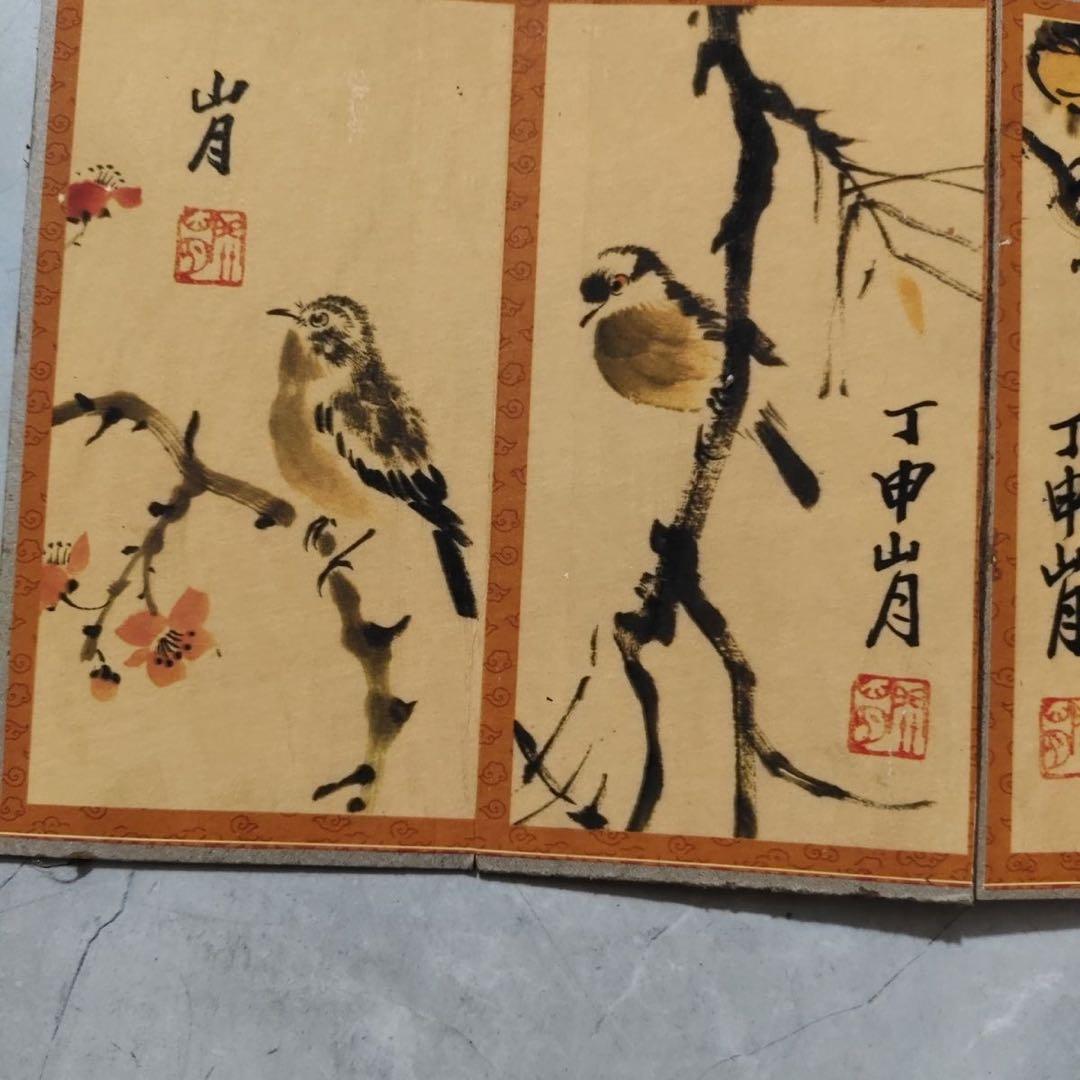 山月
丁申山月
丁申山月